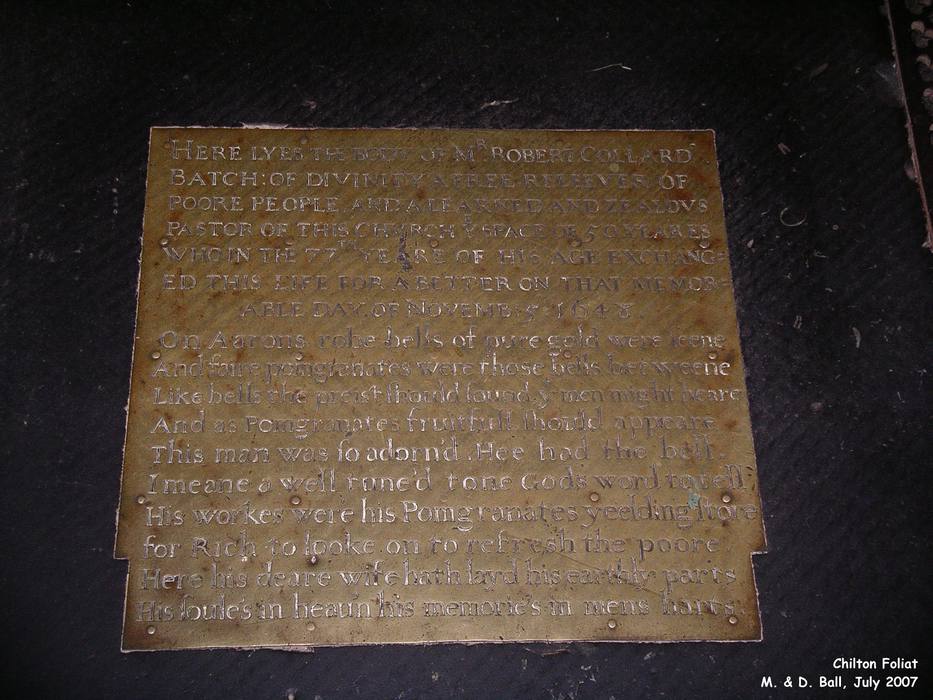 HERE LYES THE BODY OF Mᴿ ROBERT COLLARD
BATCH: OF DIVINITY A FREE RELEEVER OF
POORE PEOPLE AND A LEARNED AND ZEALOVS
PASTOR OF THIS CHVRCH Yᴱ SPACE OF 50 YEARES
WHO IN THE 77ᵀᴴ YEARE OF HIS AGE EXCHANG=
ED THIS LIFE FOR A BETTER ON THAT MEMOR=
ABLE DAY OF NOVEMB: 5 1648.
On Aarons robe bells of pure gold were ſeene
And foure pomgranates were those bells betweene
Like bells the preist ſhould ſound yᵗ men might heare
And as Pomgranates fruitfull ſhould appeare
This man was ſo adorn'd. Hee had the bell.
I meane a well tune'd tone Gods word to tell
His workes were his Pomgranates yeelding ſtore
for Rich to looke on to refresh the poore
Here his deare wife hath layd his earthly parts
His ſoule's in heau'n his memorie's in mens harts.
Chilton Foliat
M. & D. Ball, July 2007